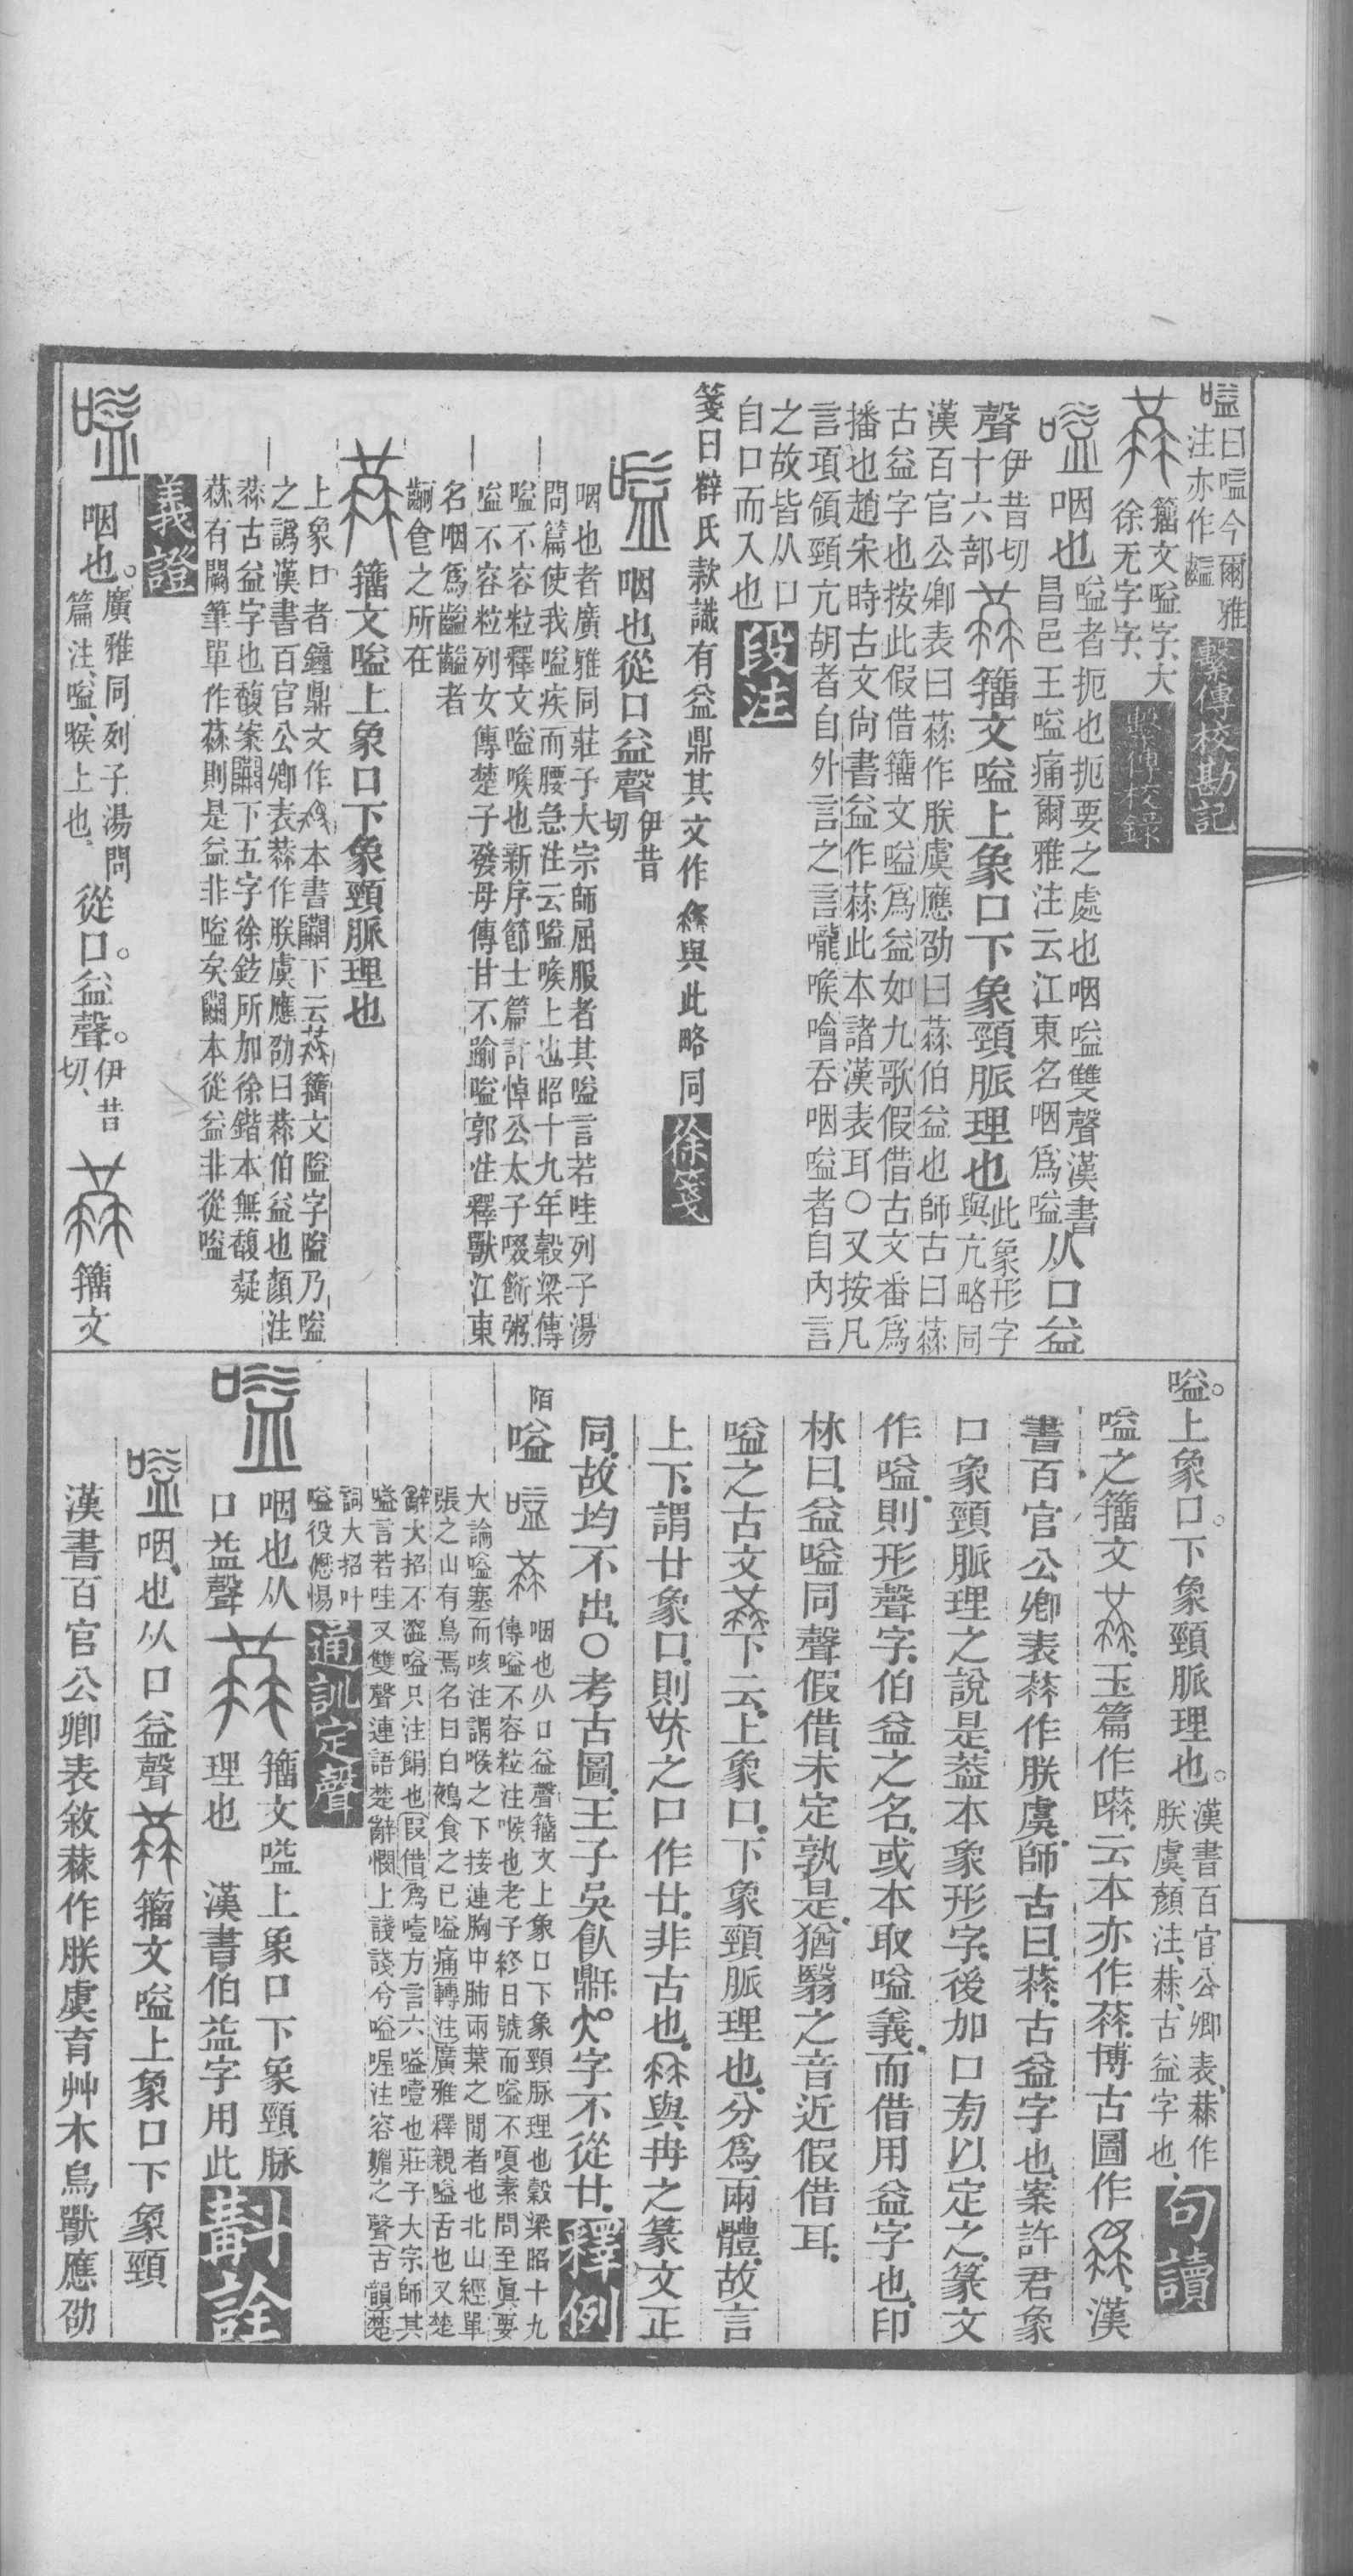 嗌曰嗌今爾雅
注亦作齸
繫傳校勘記
籒文嗌字大
徐无字字
繫傳校錄
咽也
嗌者扼也扼要之處也咽嗌雙聲漢書
昌邑王嗌痛爾雅注云江東名咽爲嗌
从口益
聲
伊昔切
十六部
籒文嗌上象口下象頸脈理也
此象形字
與亢略同
漢百官公卿表曰𦵕作朕虞應劭曰𦵕伯益也師古曰𦵕
古益字也按此假借籒文嗌爲益如九歌假借古文番爲
播也趙宋時古文尙書益作𦵕此本諸漢表耳○又按凡
言項領頸亢胡者自外言之言嚨喉噲吞咽嗌者自內言
之故皆从口
自口而入也
段注
箋曰辥氏款識有益鼎其文作與此略同
徐箋
咽也從口益聲
伊昔
切
咽也者廣雅同莊子大宗師屈服者其嗌言若哇列子湯
問篇使我嗌疾而腰急注云嗌喉上也昭十九年穀梁傳
嗌不容粒釋文嗌喉也新序節士篇許悼公太子啜飦粥
嗌不容粒列女傳楚子發母傳甘不踰嗌郭注釋獸江東
名咽爲齸齸者
齝食之所在
籒文嗌上象口下象頸脈理也
上象口者鐘鼎文作本書下云籒文隘字隘乃嗌
之譌漢書百官公卿表𦵕作朕虞應劭曰𦵕伯益也顏注
𦵕古益字也馥案下五字徐鉉所加徐鍇本無馥疑
𦵕有闕筆單作𦵕則是益非嗌矣本從益非從嗌
義證
咽也。
廣雅同列子湯問
篇注嗌喉上也
從口。益聲。
伊昔
切
籒文
嗌。上象口。下象頸脈理也。
漢書百官公卿表𦵕作
朕虞顏注𦵕古益字也
句讀
嗌之籒文玉篇作云本亦作𦵕博古圖作漢
書百官公卿表𦵕作朕虞師古曰𦵕古益字也案許君象
口象頸脈理之說是葢本象形字後加口㫄以定之篆文
作嗌則形聲字伯益之名或本取嗌義而借用益字也印
林曰益嗌同聲假借未定孰是猶翳之音近假借耳
嗌之古文下云上象口下象頸脈理也分爲兩體故言
上下謂廿象口則之口作廿非古也與冉之篆文正
同故均不出○考古圖王子吳飤鼎字不從廿
釋例
陌
嗌
咽也从口益聲籒文上象口下象頸脈理也穀梁昭十九
傳嗌不容粒注喉也老子終日號而嗌不嗄素問至眞要
大論嗌塞而咳注謂喉之下接連胸中肺兩葉之閒者也北山經單
張之山有鳥焉名曰白鵺食之已嗌痛轉注廣雅釋親嗌舌也又楚
辭大招不歰嗌只注餶也叚借爲噎方言六嗌噎也莊子大宗師其
嗌言若哇又雙聲連語楚辭憫上諓諓兮嗌喔注容媚之聲古韻楚
詞大招叶
嗌役惕
通訓定聲
咽也从
口益聲
籒文嗌上象口下象頸脈
理也 漢書伯益字用此
斠詮
咽也从口益聲籒文嗌上象口下象頸
漢書百官公卿表敘𦵕作朕虞育艸木鳥獸應劭